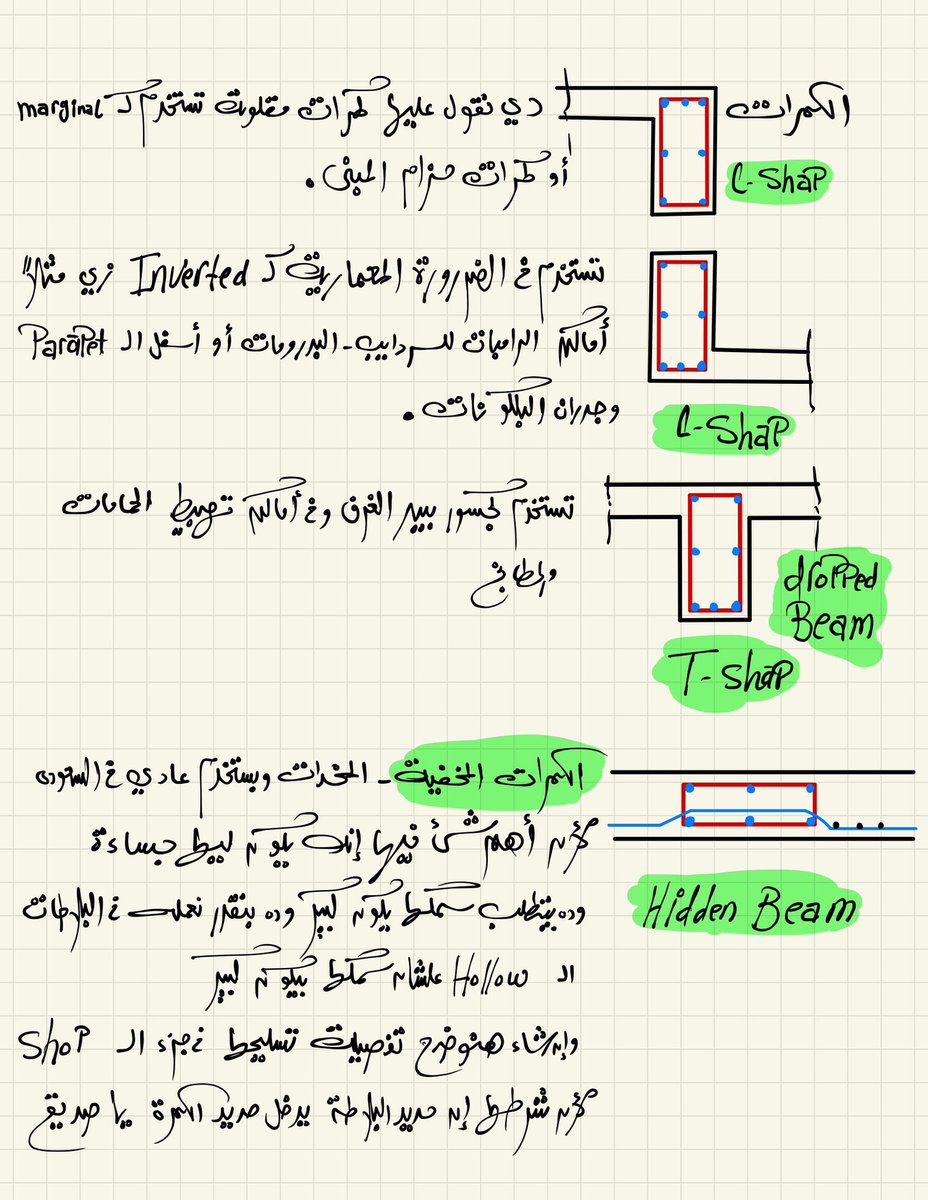 الكمرات
L-Shap
دي نقول عليها كمرات مقلوبة تستخدم كـ marginal
أو كمرات حزام المبنى .
تستخدم في الضرورة المعمارية كـ Inverted زي مثلاً
أماكن الرامبات للسراديب - البدرومات أو أسفل الـ Parapet
وجدران البلكونات .
L-Shap
تستخدم كجسور بين الغرف وفي أماكن تهبيط الحمامات
والمطابخ
dropped
Beam
T-Shap
الكمرات المخفية - المخدات وبستخدم عادي في السقوف
لأن أهم شئ فيها إنك يكون ليها جساءة
وده بيتطلب سمكها يكون كبير وده بنقدر نعمله في البلاطات
الـ Hollow علشان سمكها بيكون كبير
Hidden Beam
وإن شاء هنوضح تفصيلة تسليحها في جزء الـ Shop
لأن شرطها إن حديد البلاطة يدخل حديد الكمرة يا صديقي